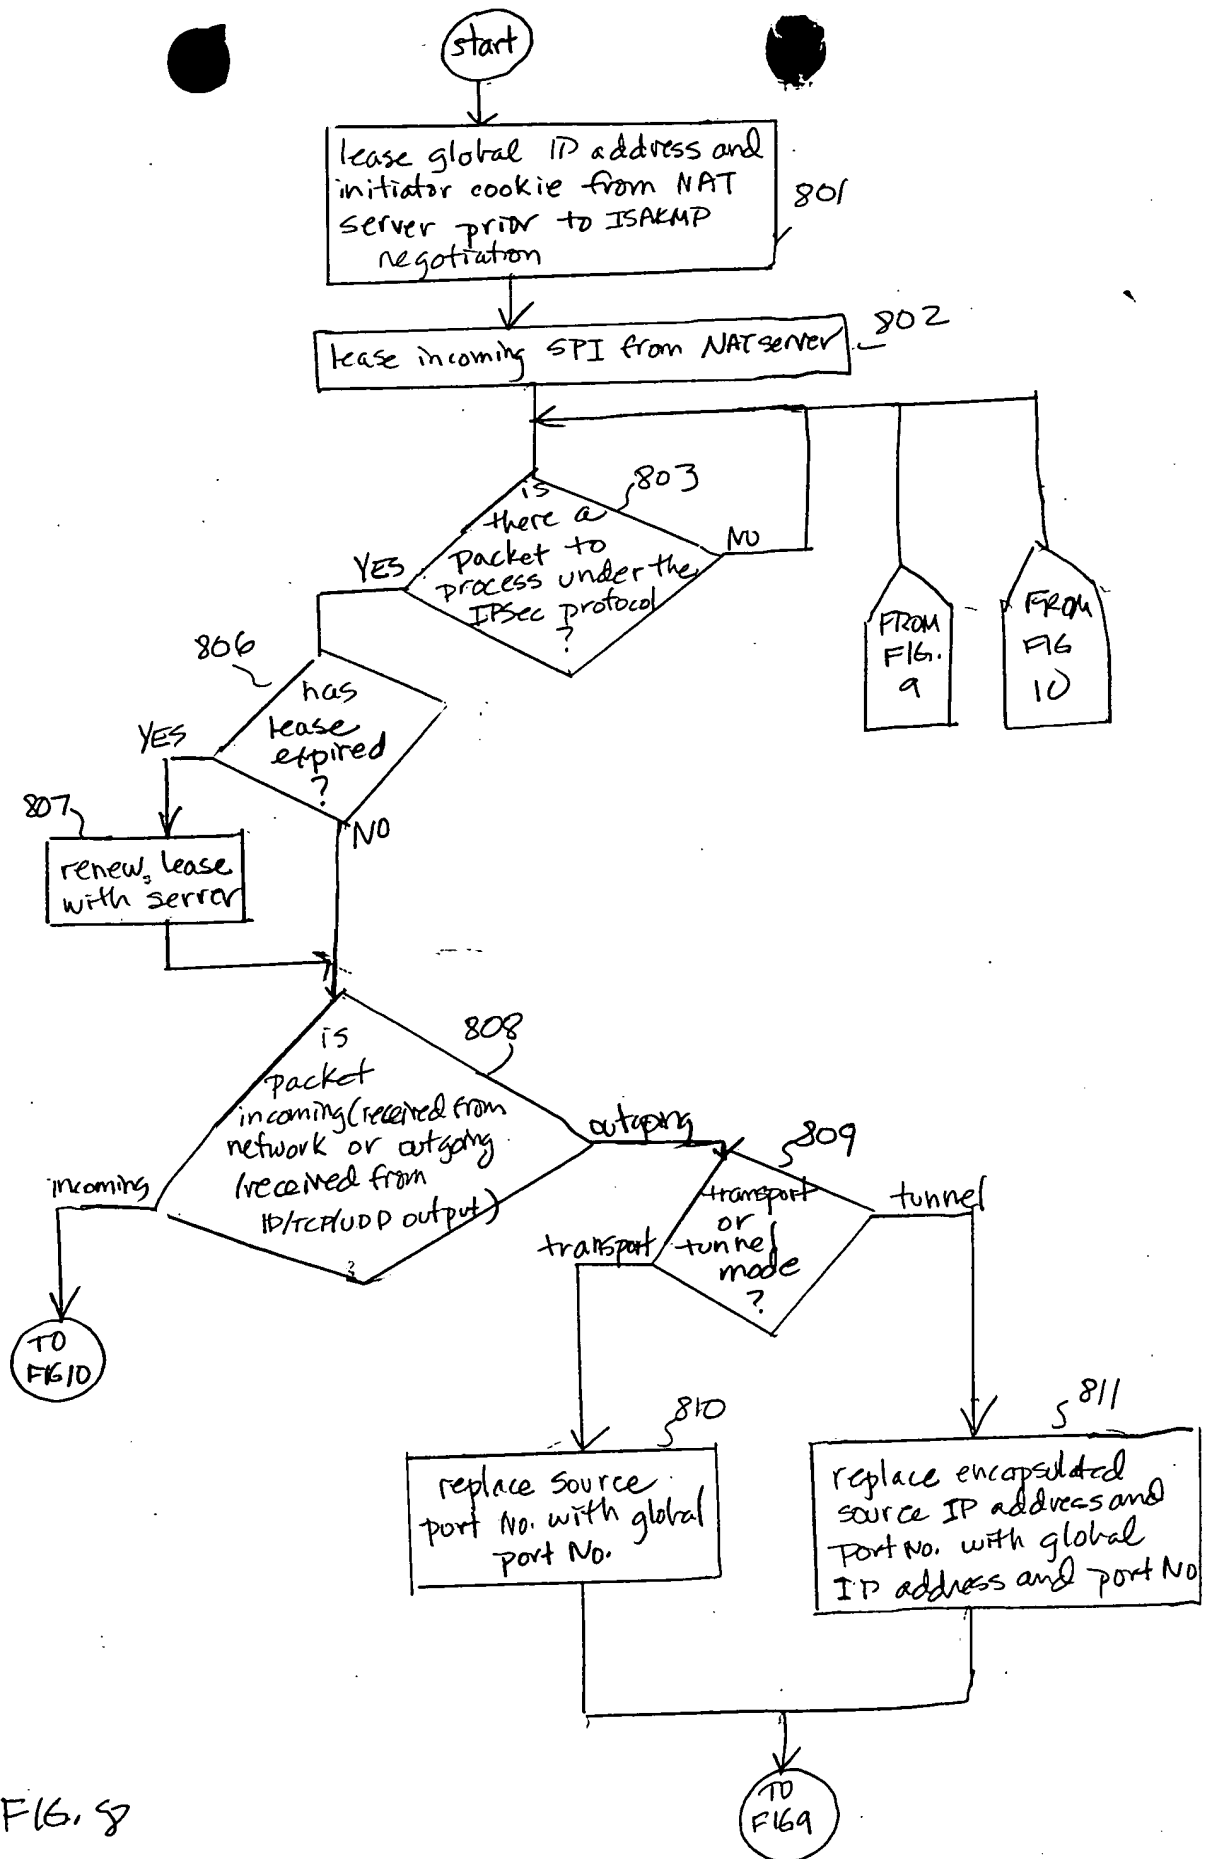 start
lease global IP address and
initiator cookie from NAT
server prior to ISAKMP
negotiation
801
lease incoming SPI from NAT server
802
803
is
there a
packet to
process under the
IPSec protocol
?
NO
YES
FROM
FIG.
9
FROM
FIG
10
806
has
lease
expired
?
YES
NO
807
renew lease
with server
808
is
packet
incoming (received from
network or outgoing
(received from
IP/TCP/UDP output)
?
incoming
outgoing
TO
FIG10
809
transport
or
tunnel
mode
?
transport
tunnel
810
replace source
port No. with global
port No.
811
replace encapsulated
source IP address and
port No. with global
IP address and port No
TO
FIG9
FIG. 8